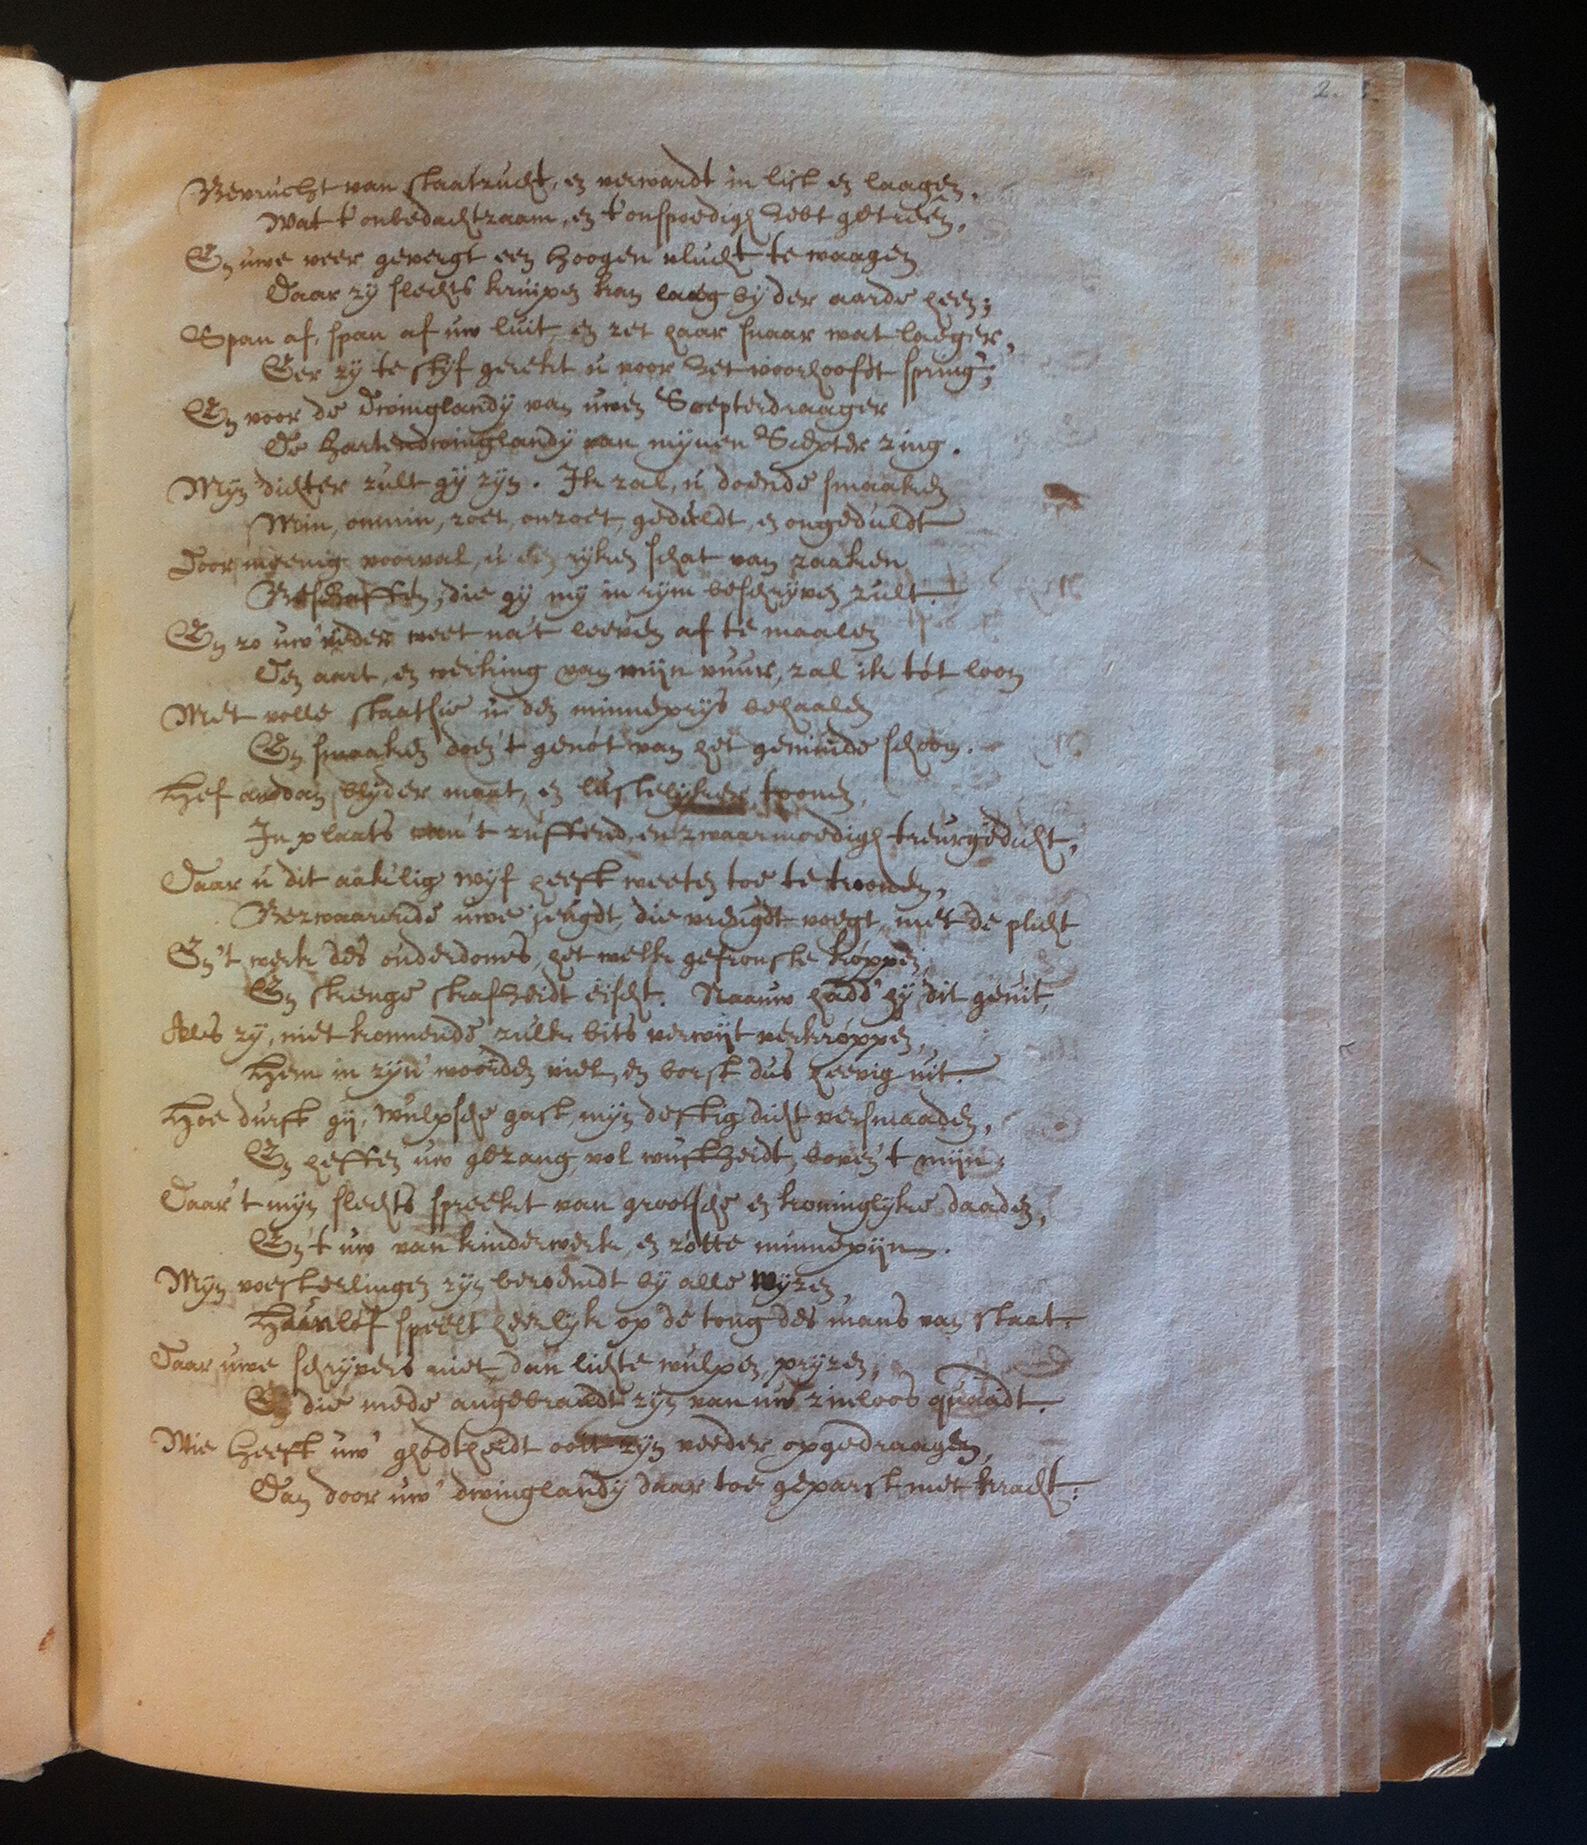 2.
Bevrucht van staatzucht, en verwardt in list en laagen,
Wat t' onbedachtzaam, en t' onspoedigh hebt getreên,
En uwe veer gevergt een hoogen vlucht te waagen
Daar zy slechts kruipen kan laag by der aarde heen;
Span af, span af uw luit, en zet haar snaar wat laeger,
Eer zy te styf gerekt u voor het voorhooft spring';
En voor de dwinglandy van uwen Scepterdraager
De hartendwinglandy van mynen Schepter zing.
Myn dichter zult gy zyn. Ik zal, u doende smaaken
Min, onmin, zoet, onzoet, geduldt, en ongeduldt
Door menig voorval, u den ryken schat van zaaken
Beschaffen, die gy my in rym beschryven zult.
En zo uw veder weet na't leeven af te maalen
Den aart, en werking van myn vuur, zal ik tot loon
Met volle staatsie u den minneprys behaalen
En smaaken doen 't genot van het geminde schoon.
Hef an dan blyder maat, en lustelyker toonen,
In plaats van 't zuffend, en zwaarmoedigh treurgedicht,
Daar u dit aaklig wyf heeft weeten toe te troonen,
Bezwaarende uwe jeugdt, die vreugdt voegt, met de plicht
En 't werk des ouderdoms, het welk gefronste koppen
En strenge strafheidt eischt. Naauw hadd' hy dit geuit,
Als zy, niet konnende zulk bits verwyt verkroppen,
Hem in zyn woorden viel, en borst dus heevig uit.
Hoe durft gy, wulpsche gast, myn deftig dicht versmaaden,
En heffen uw gezang, vol wuftheidt, boven 't myn;
Daar 't myn slechts spreekt van grootsche en koninglyke daaden,
En 't uw van kinderwerk, en zotte minnepyn.
Myn voesterlingen zyn beroemdt by alle wyzen,
Haar lof speelt heerlyk op de tong des mans van staat.
Daar uwe schryvers niet dan lichte wulpen pryzen,
En die mede angebrandt zyn van uw zinloos quaadt.
Wie heeft uw' godtheidt ooit zyn veeder opgedraagen,
Dan door uw' dwinglandy daar toe geparst met kracht: